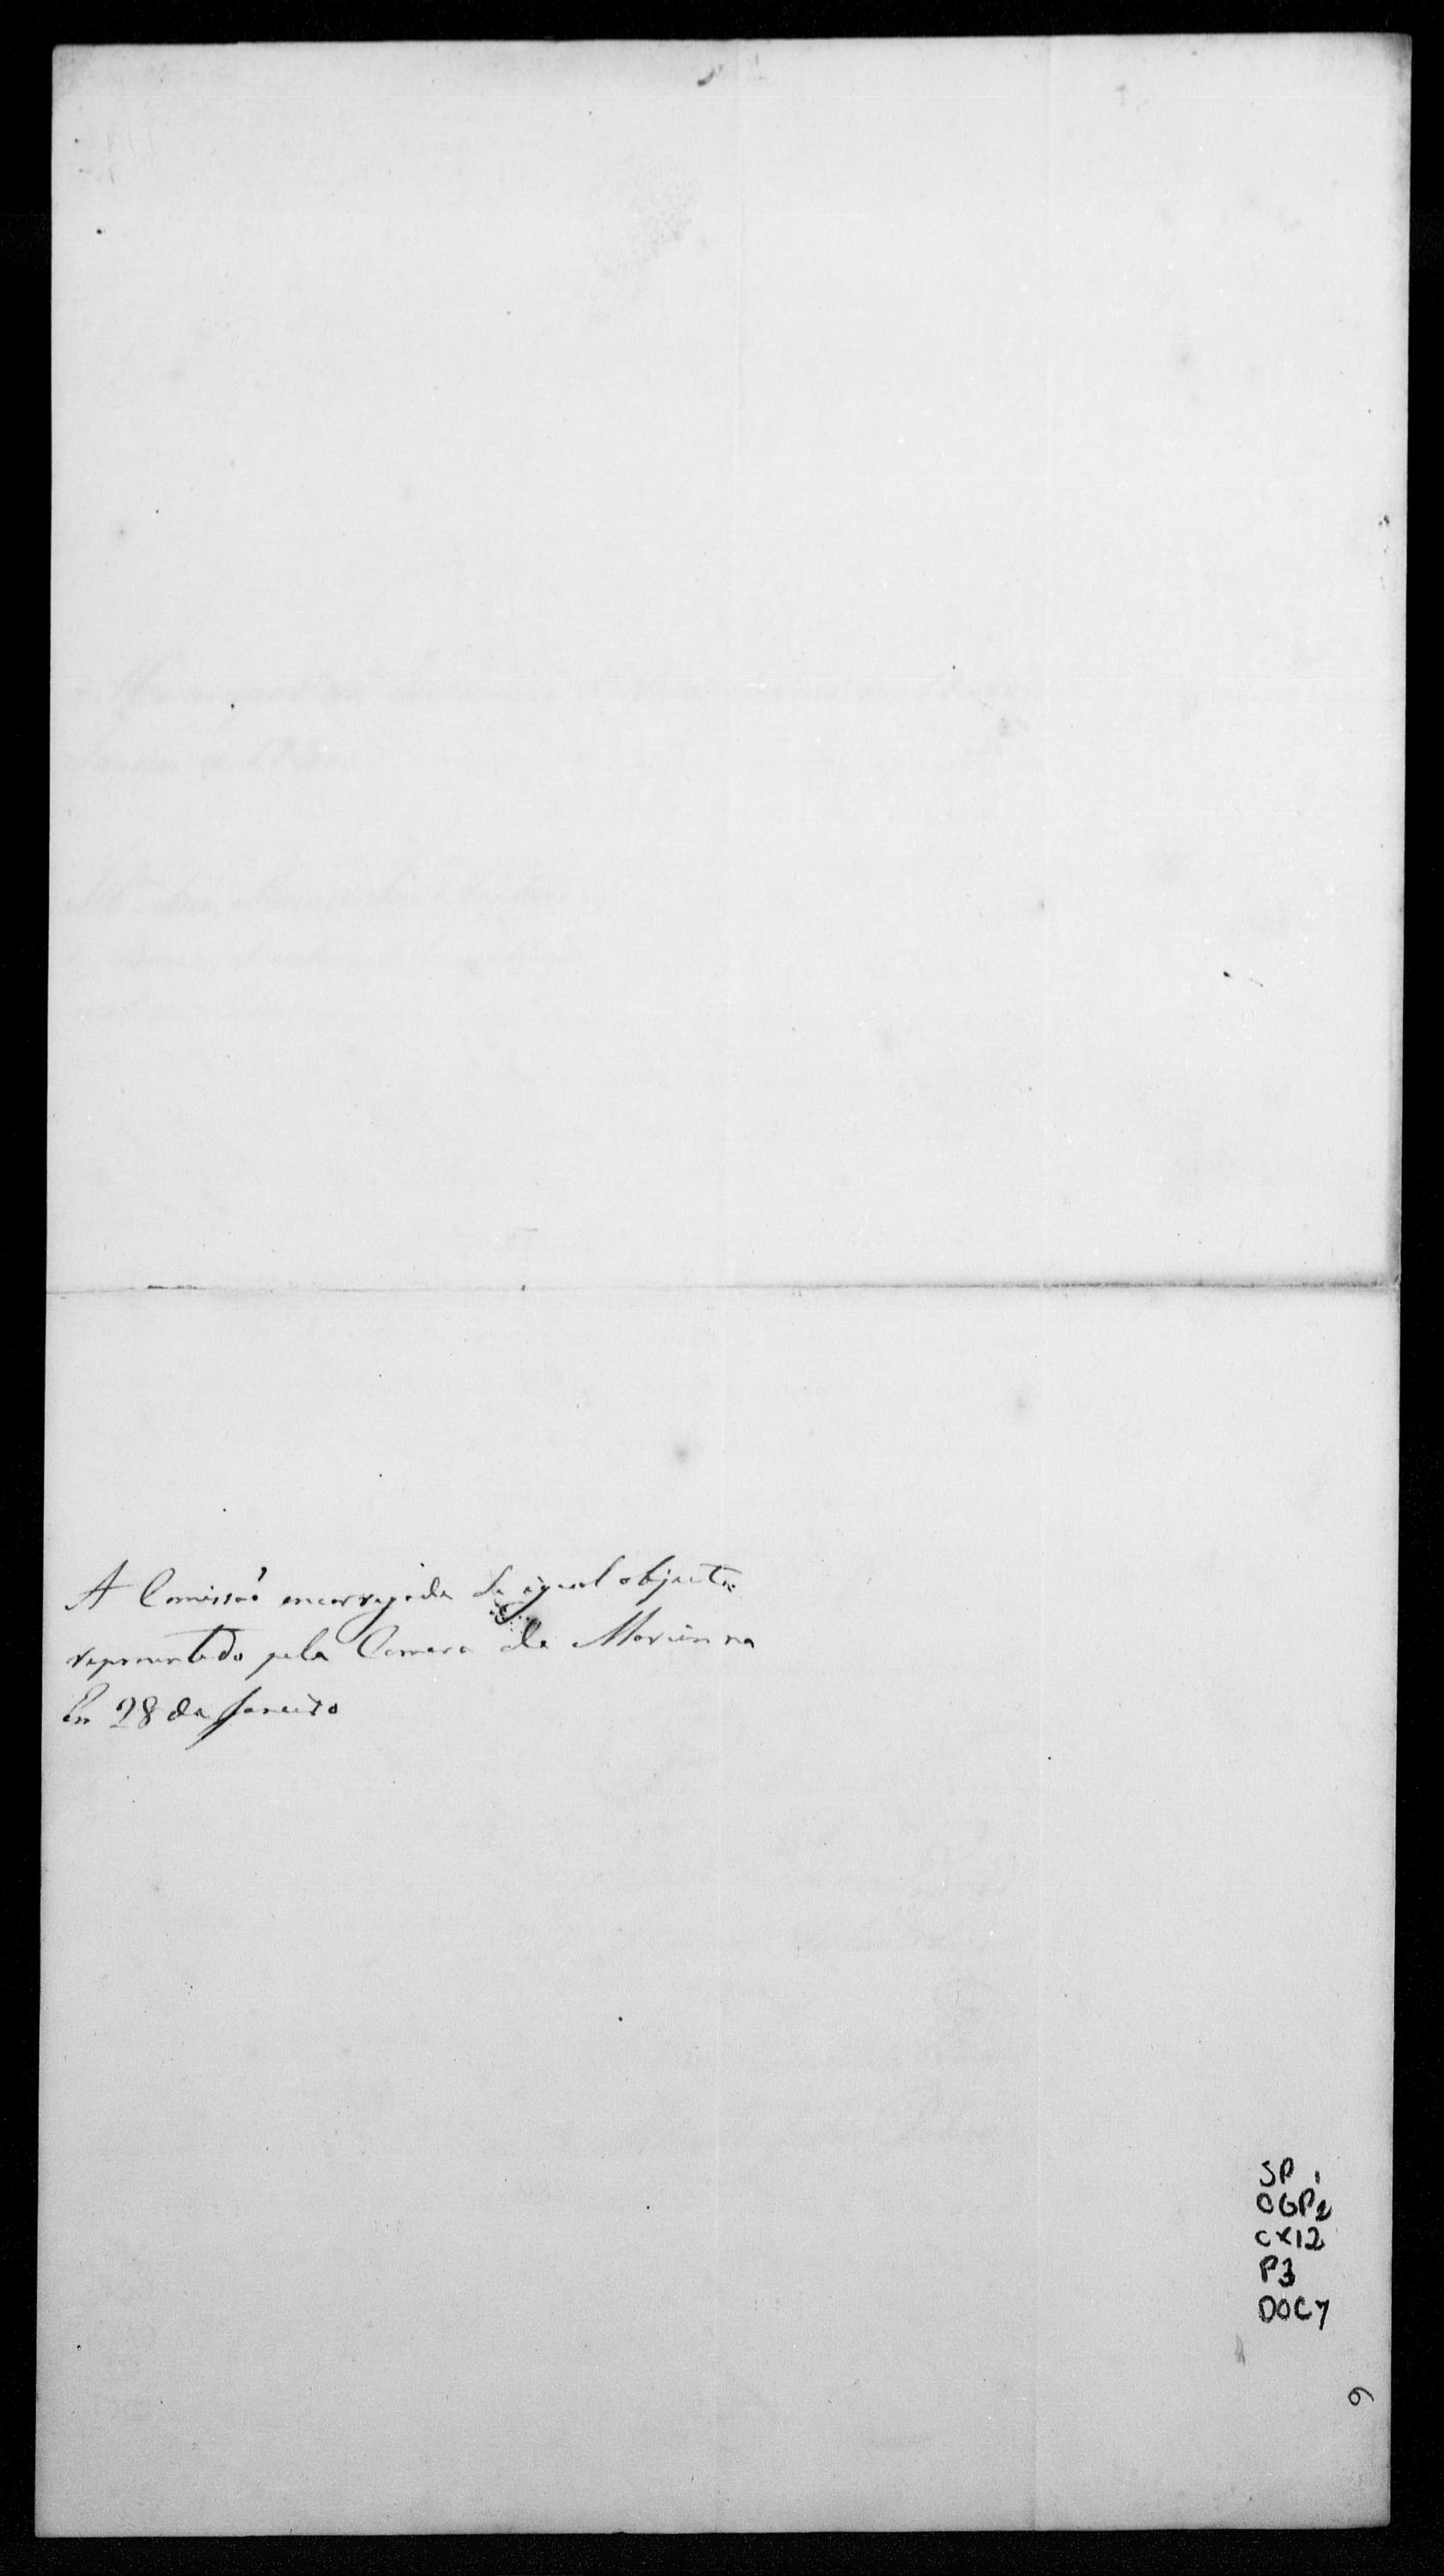 A Comissaõ encarregada de igual objecto
reprezentado pela Camara de Marianna
Em 28 de Janeiro
SP 1
OGP2
CX12
P3
DOC7
6